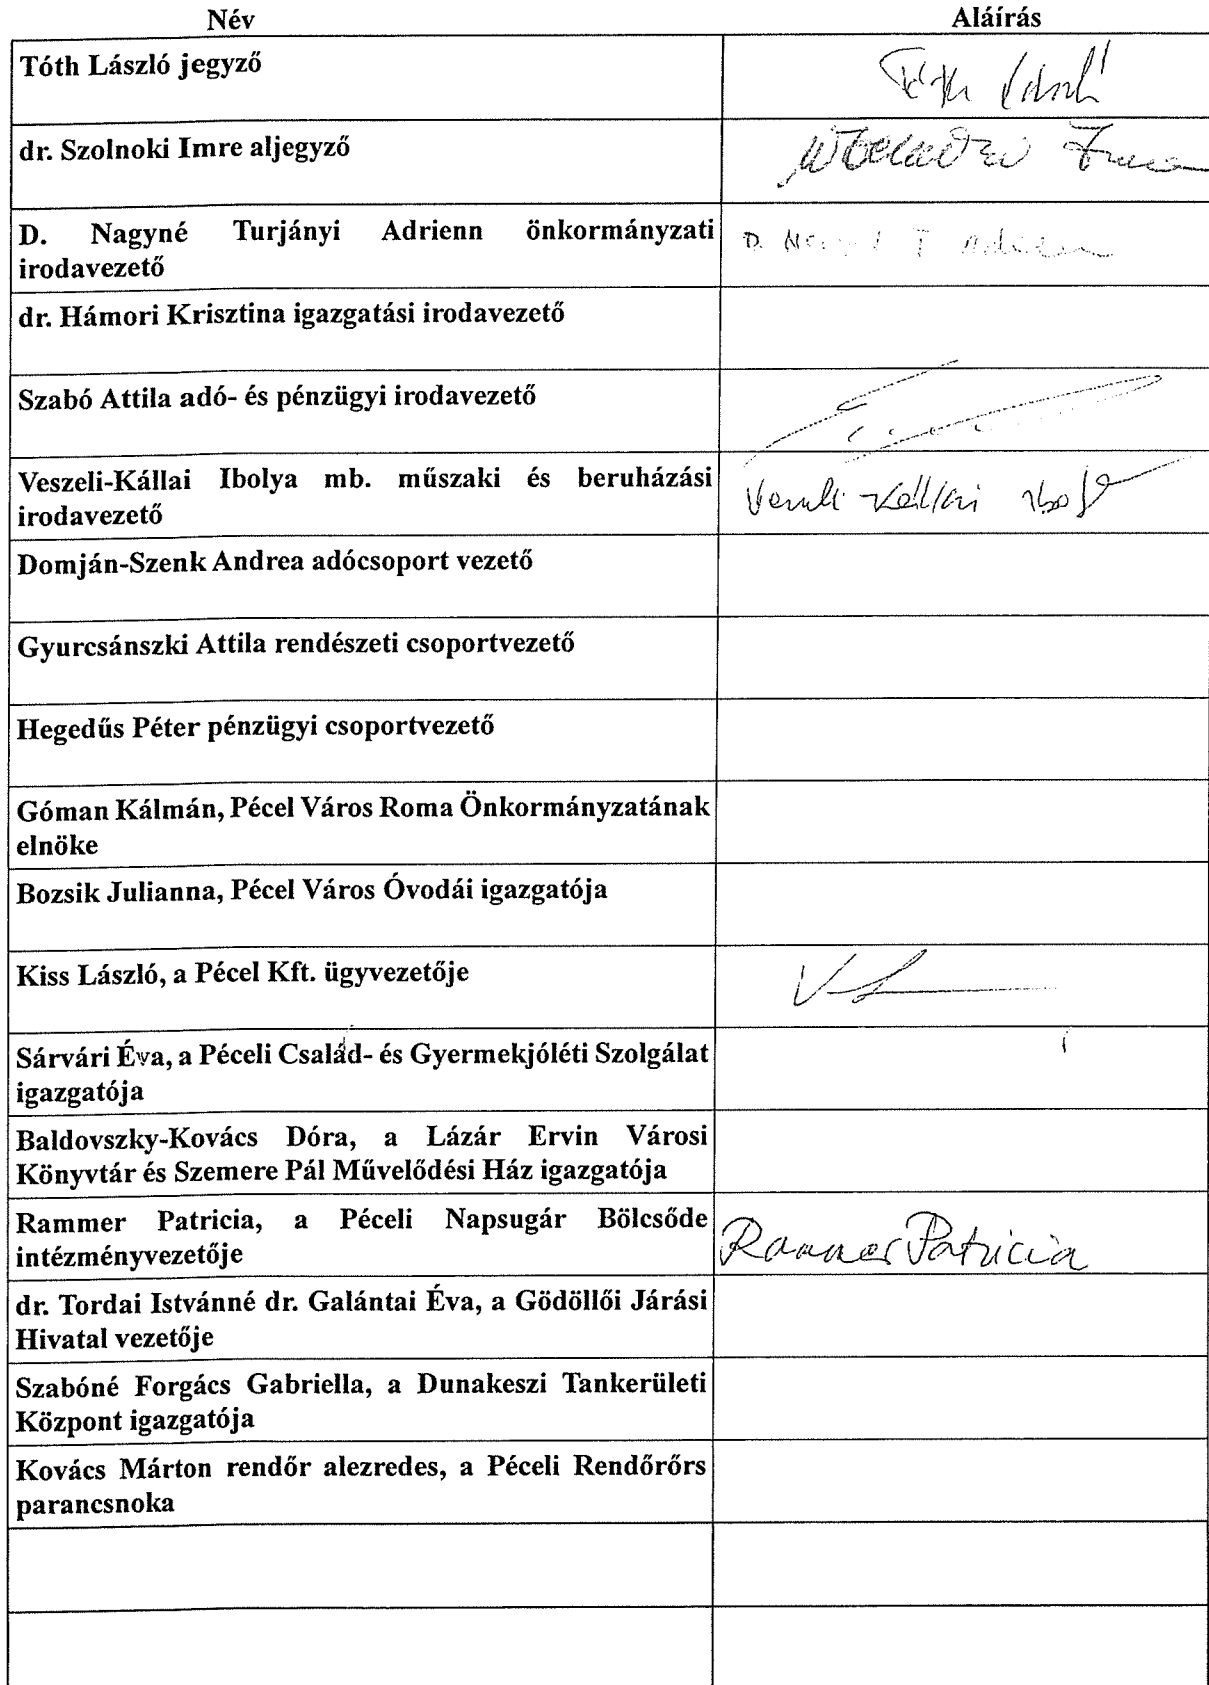 Név Aláírás
Tóth László jegyző Tóth László
dr. Szolnoki Imre aljegyző Szolnoki Imre
D. Nagyné Turjányi Adrienn önkormányzati D. Nagyné T Adrienn
irodavezető
dr. Hámori Krisztina igazgatási irodavezető
Szabó Attila adó- és pénzügyi irodavezető
Veszeli-Kállai Ibolya mb. műszaki és beruházási Veszeli-Kállai Ibolya
irodavezető
Domján-Szenk Andrea adócsoport vezető
Gyurcsánszki Attila rendészeti csoportvezető
Hegedűs Péter pénzügyi csoportvezető
Góman Kálmán, Pécel Város Roma Önkormányzatának
elnöke
Bozsik Julianna, Pécel Város Óvodái igazgatója
Kiss László, a Pécel Kft. ügyvezetője
Sárvári Éva, a Péceli Család- és Gyermekjóléti Szolgálat
igazgatója
Baldovszky-Kovács Dóra, a Lázár Ervin Városi
Könyvtár és Szemere Pál Művelődési Ház igazgatója
Rammer Patricia, a Péceli Napsugár Bölcsőde Rammer Patricia
intézményvezetője
dr. Tordai Istvánné dr. Galántai Éva, a Gödöllői Járási
Hivatal vezetője
Szabóné Forgács Gabriella, a Dunakeszi Tankerületi
Központ igazgatója
Kovács Márton rendőr alezredes, a Péceli Rendőrőrs
parancsnoka